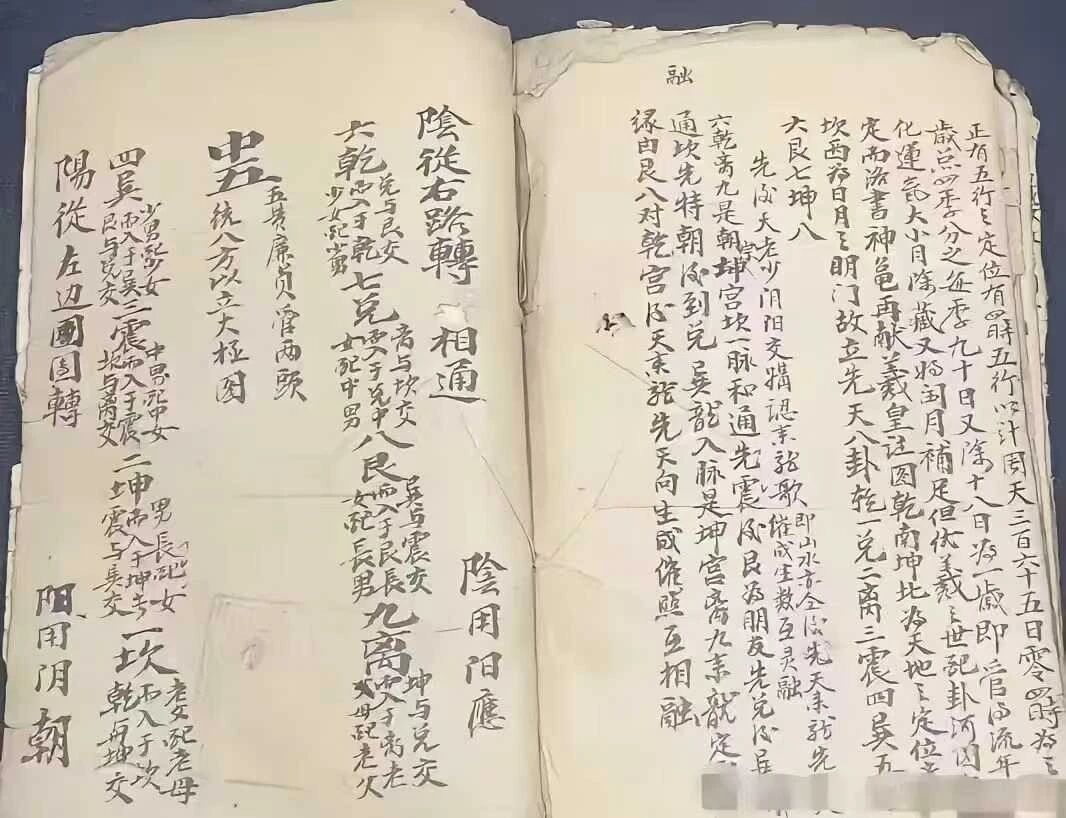 正有五行之定位有四時五行以计周天三百六十五日零四時為之
歲点四季分之每季九十日又除十八日為一歲即管为流年
化運氣大小月除藏又為闰月補足但伏羲之世記卦河図
定而洛書神龟再献羲皇註图乾南坤北為天地之定位
坎西为日月之明门故立先天八卦乾一兑二离三震四巽五
大艮七坤八
先後天老少阴阳交媾認来龍歌即山水亦全後先天来龍先
催成生数互灵融
六乾离九是朝坤宫坎一脉和通先震後艮為朋友先兑後
通坎先特朝後到兑巽龍入脉是坤宫离九来龍定
禄白艮八对乾宫後天来龍先天向生成催照互相融
融
陰從右路轉 相通 陰用阳應
六乾兑与艮交而入于乾少女配少男七兑离与坎交而入于兑中女配中男八艮巽与震交而入于艮長女配長男九离坤与兑交而入于离老母配老父
中五五黄廉貞管两頭統八方以立大極图
四巽少男配少女而入于巽艮与兑交三震中男配中女而入于震坎与离交二坤男長配女而入于坤震与巽交一坎老父配老母而入于坎乾与坤交
陽從左边團團轉 阳用阴朝